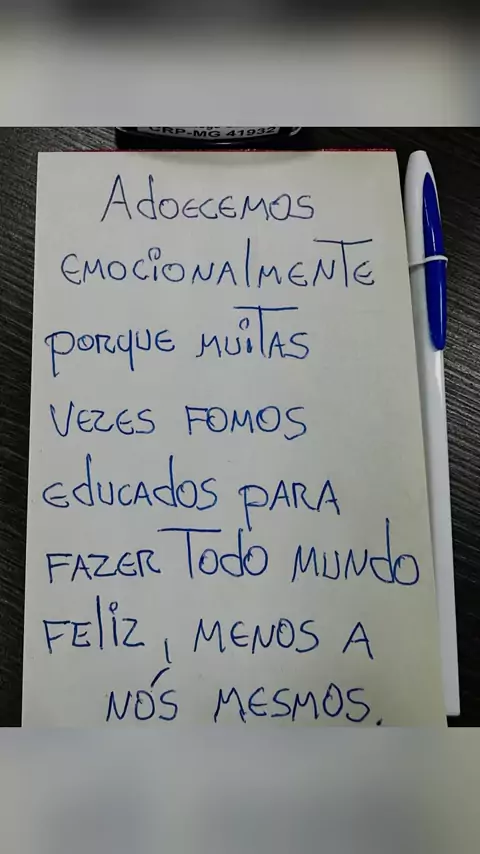 CRP-MG 41932
Adoecemos
emocionalmente
porque muitas
vezes fomos
educados para
fazer todo mundo
feliz, menos a
nós mesmos.